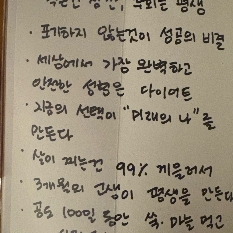 후회는 평생
· 포기하지 않는것이 성공의 비결
· 세상에서 가장 완벽하고
안전한 성형은 다이어트
· 지금의 선택이 "미래의 나"를
만든다
· 살이 찌는건 99% 게을러서
· 3개월의 고생이 평생을 만든다
· 곰도 100일 동안 쑥. 마늘 먹고